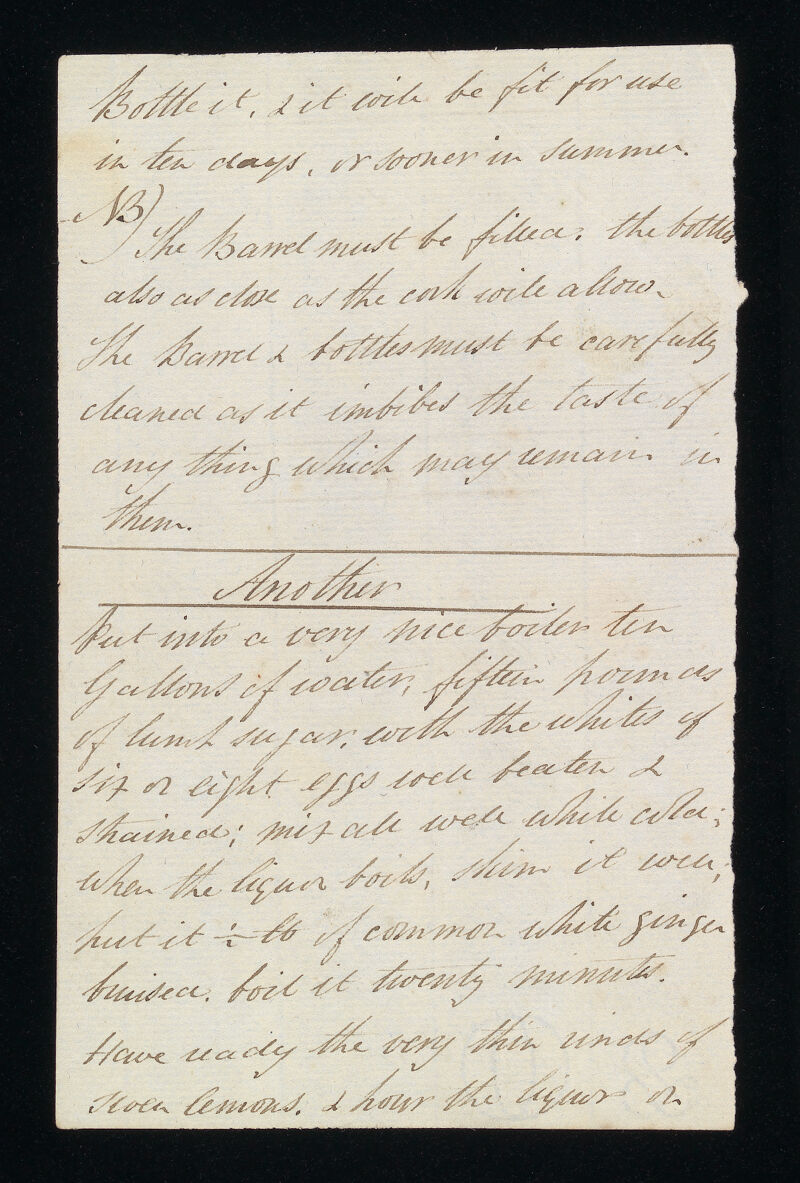 Bottle it, & it will be fit for use
in ten days, or sooner in summer.
NB)
The Barrel must be filled. the bottles
also as close as the cork will allow
The Barrel & bottles must be carefully
cleaned as it imbibes the taste of
any thing which may remain in
them.
Another
Put into a very nice boiler ten
Gallons of water, fifteen pounds
of lump sugar, with the whites of
six or eight eggs well beaten &
strained; mix all well while cold;
when the liquor boils, skim it well;
put it ½ lb of common white ginger
bruised. boil it twenty minutes.
Have ready the very thin rinds of
seven lemons. & pour the liquor on